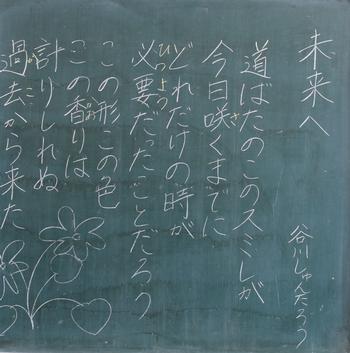 未来へ
谷川しゅんたろう
道ばたのこのスミレが
今日咲くまでに
どれだけの時が
必要だったことだろう
この形この色
この香りは
計りしれぬ
過去から来た